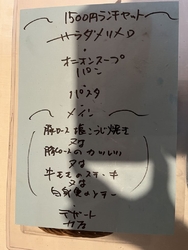 1500円ランチャート
サラダメリメロ
・
オニオンスープ
パン
・
パスタ
メイン
豚ロース塩こうじ焼き
又は
豚ロースの
又は
牛モモのステーキ
又は
白身魚のソテー
デザート
カフェ